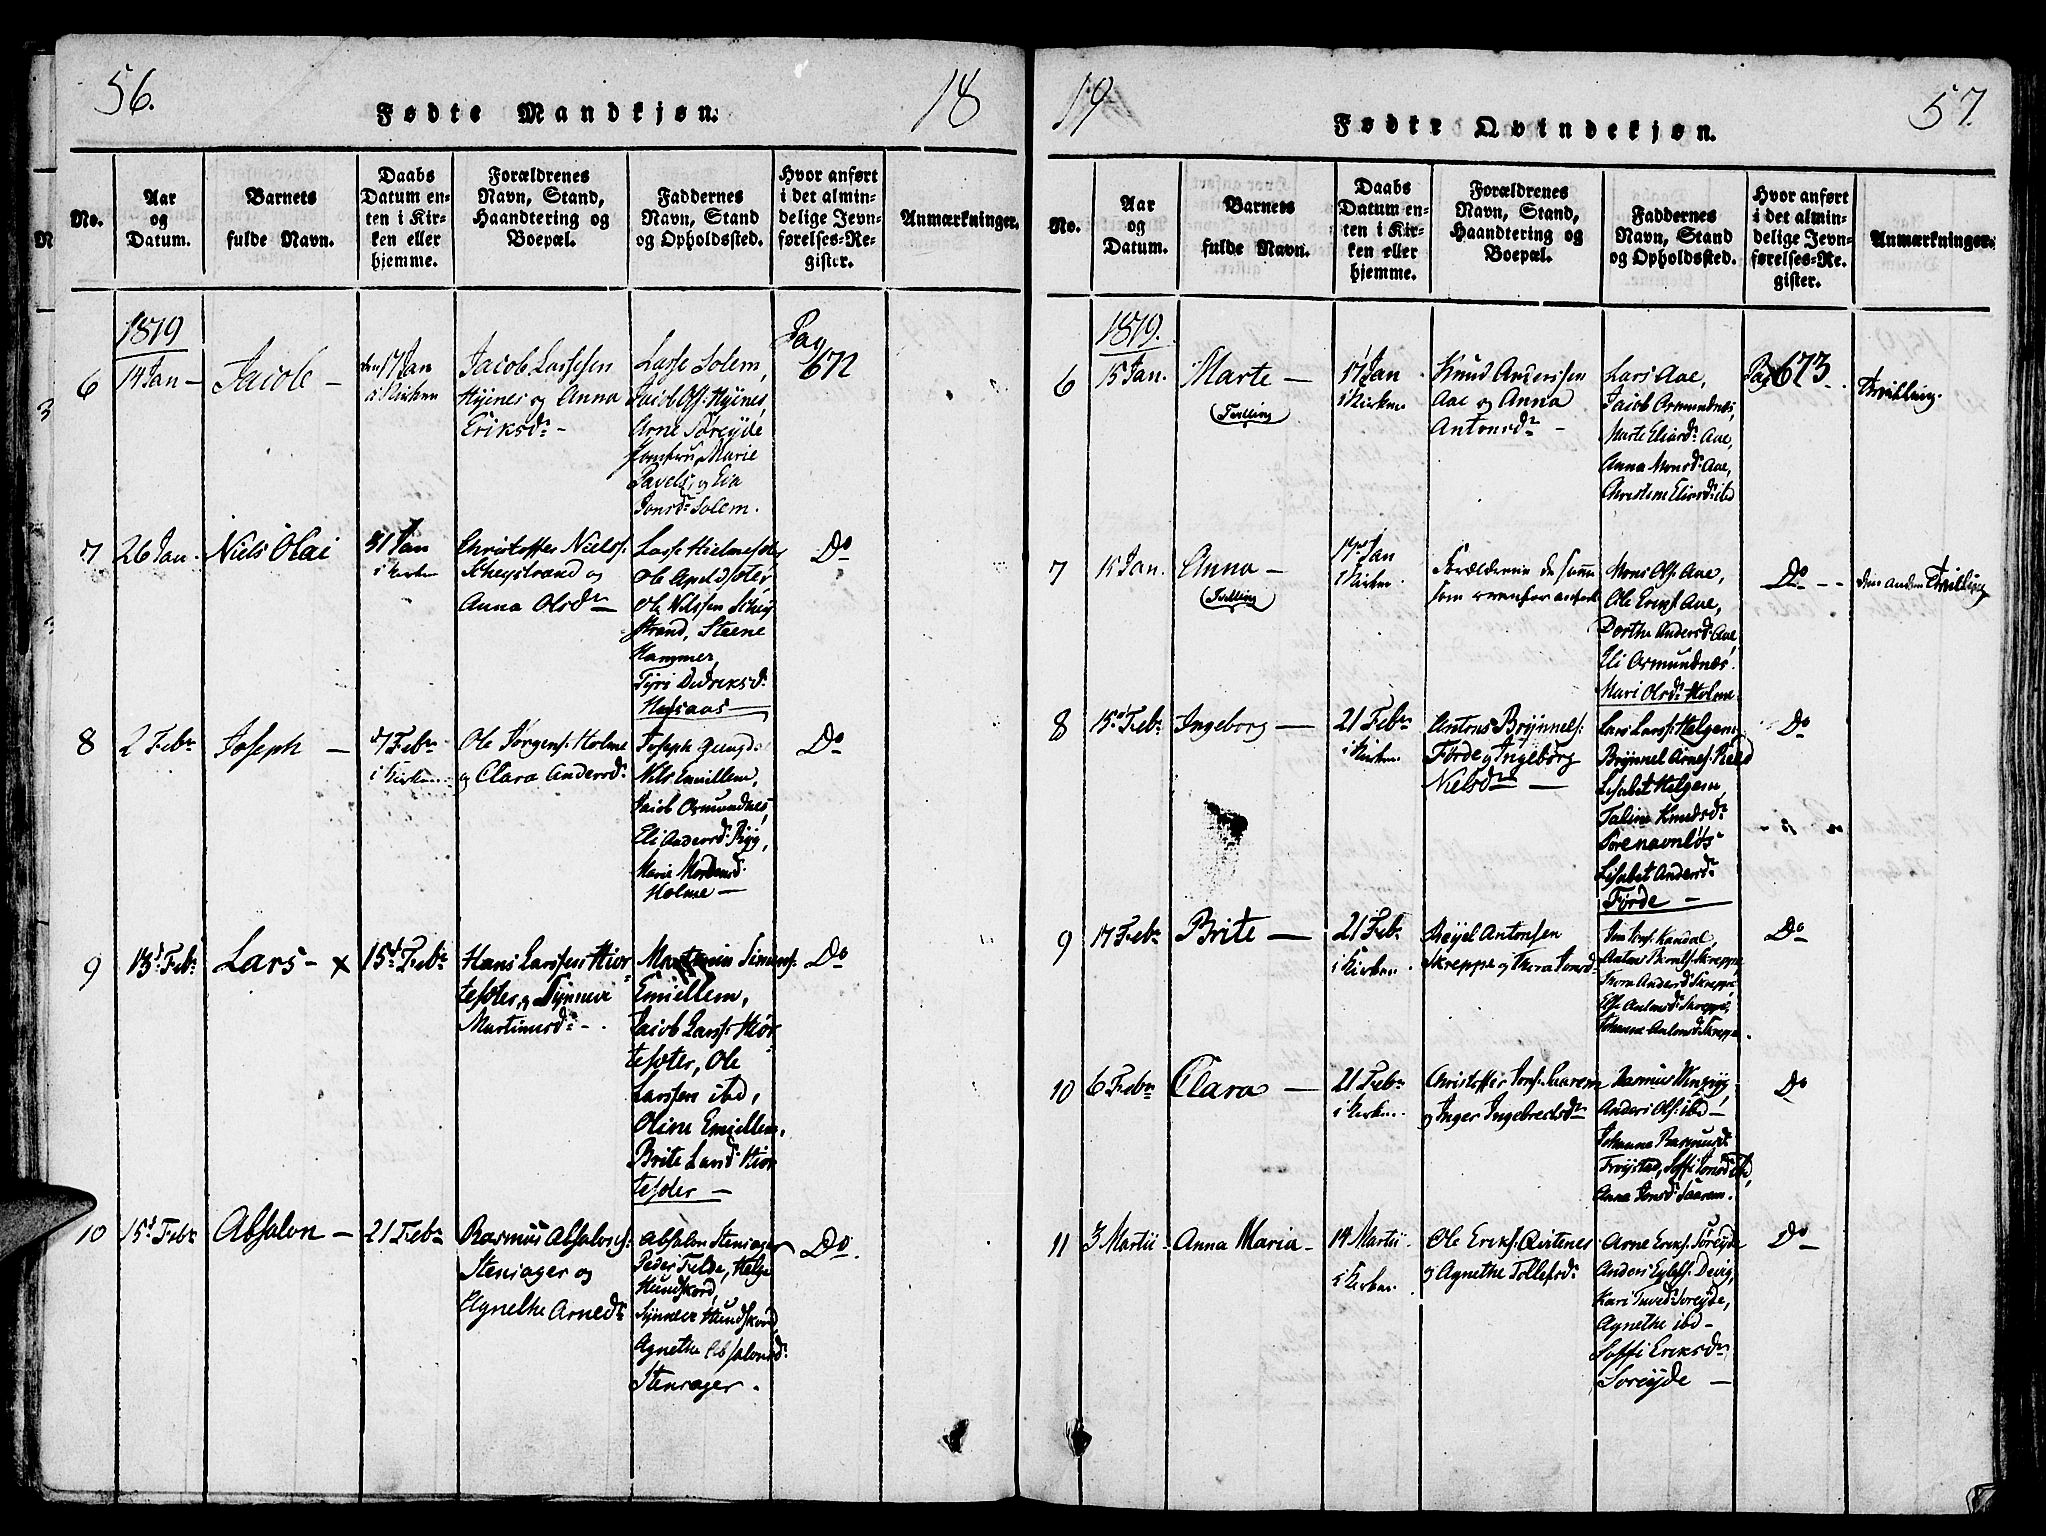 56.
Fødte Mandkjøn.
18
No.
Aar og Datum.
Barnets fulde Navn.
Daabs Datum enten i Kirken eller hjemme.
Forældrenes Navn, Stand, Haandtering og Boepæl.
Faddernes Navn, Stand og Opholdssted.
Hvor anført i det almindelige Jevnførelses-Register.
Anmærkninger.
1819
6
14 Jan –
Jacob –
17 Jan
i Kirken
Jacob Lassesen
Hyenes og Anna
Eriksdr –
Lasse Solem,
Jacob Ols: Hyenes,
Arne Söreyde
Jomfru Marie
og
Jonsdr Solem.
Pag
672
7
26 Jan.
Niels Olai
31 Jan
i Kirken
Christoffer Niels:
og
Anna Olsdr
Ole
Ole Nilssen
strand, Steene
Hammer,
Didriksd:
Do
8
2 Febr
Joseph –
7 Febr
i Kirken
Ole Jörgens: Holme
og Clara Andersd:
Joseph
Nils Emillem,
Jacob Osmundnes,
Eli Andersd:
Marie
Holme –
Do
9
13d Febr
Lars – x
15d Febr
Hans Larssen Hior
tesöter, og Synneve
Martinusd: –
Simens:
Emiellem,
Jacob Larss: Hiör
tesöter, Ole
Larssen ibd,
Oline Emiellem,
Brite Larsd: Hiör
tesöter –
Do
10
15d Febr
Absalon –
21 Febr
Rasmus Absalons:
Stensager og
Agnethe Arnedr
Absalon Stensager
Peder Felde, Helge
Hundskord,
Synneve Hundskord,
Agnethe Absalonsd:
Stensager.
Do.
19
Fødte Qvindekjøn.
57.
No.
Aar og Datum.
Barnets fulde Navn.
Daabs Datum enten i Kirken eller hjemme.
Forældrenes Navn, Stand, Haandtering og Boepæl.
Faddernes Navn, Stand og Opholdssted.
Hvor anført i det almindelige Jevnførelses-Register.
Anmærkninger.
1819.
6
15 Jan.
Marte –
(Tvilling)
17 Jan
i Kirken
Knud Anderssen
Aae og Anna
Antonsdr –
Lars Aae,
Jacob Osmundnes,
Marte Eliasd: Aae,
Anna Monsd: Aae,
Christene Eliasd: ibd
Pag 673
Tvilling.
7
15 Jan.
Anna –
(Tvilling)
17 Jan
i Kirken.
Forældrene de samme
som
Mons Ols: Aae,
Ole Eriks: Aae,
Dorthe Andersd: Aae
Eli Osmundnes
Mari Olsd: Holme.
Do
den anden Tvilling
8
15d Febr
Ingeborg –
21 Febr
i Kirken.
Antons Brynnels:
Förde og Ingeborg
Nielsdr –
Lars Larss: Helgem
Brynnel Arnes:
Lisabet Helgem,
Knudsdr
Lisabet Andersdr
Förde –
Do
9
17 Febr
Brite –
21 Febr
i Kirken.
Antonsen
Skreppe og Thora
Jons: Kandal,
Anton Skreppe,
Thora Andersd: Skreppe
Antonsd: Skreppe,
Johanne Antonsd: Skreppe.
Do
10
6 Febr
Clara –
21 Febr
i Kirken.
Christoffer Jons: Saarem
og Inger Ingebretsdr
Rasmus
Anders Ols: ibd –
Johanna Rasmusd:
Fröystad, Soffi
Anna Jonsd: Saarem.
Do
11
3 Martii
Anna Maria –
14 Martii
i Kirken.
Ole Eriks:
og Agnethe Tollefsd:
Arne Eriks: Söreyde
Anders
Kari Söreyde,
Agnethe ibd –
Soffi Eriksdr
Söreyde –
Do